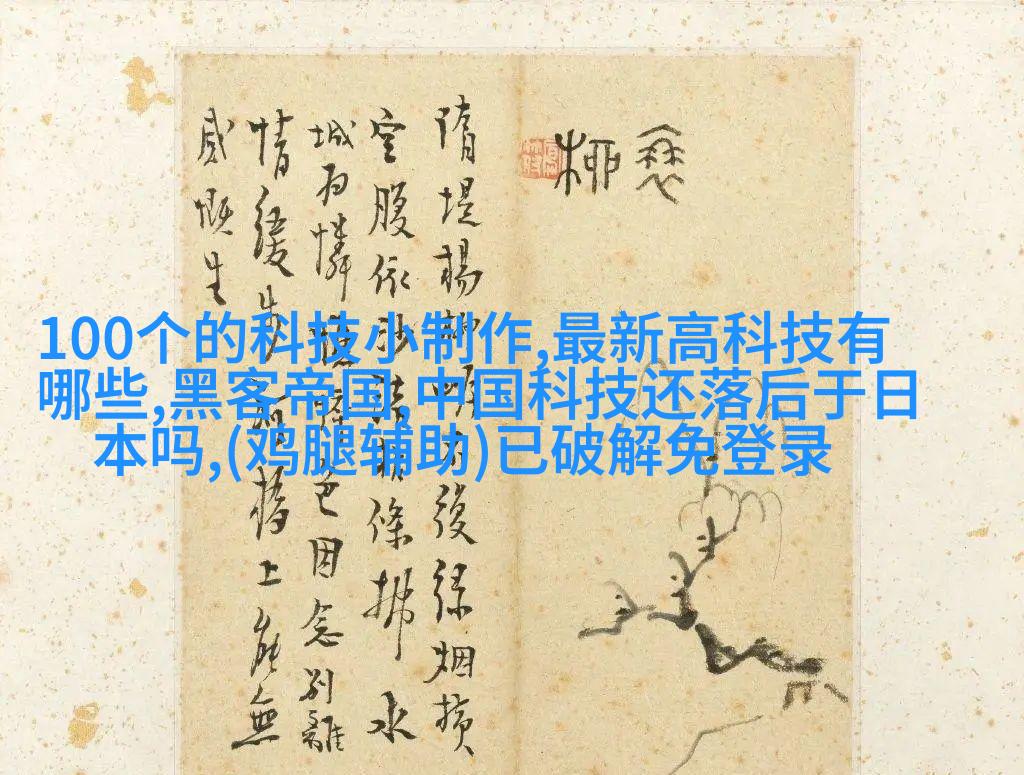 100个的科技小制作,最新高科技有
哪些,黑客帝国,中国科技还落后于日
本吗,(鸡腿辅助)已破解免登录
柳
隋堤楊柳 緑烟横
空腹依沙 條拂水
城 憐 色因念别離
情緩步 橋上能無
感慨生